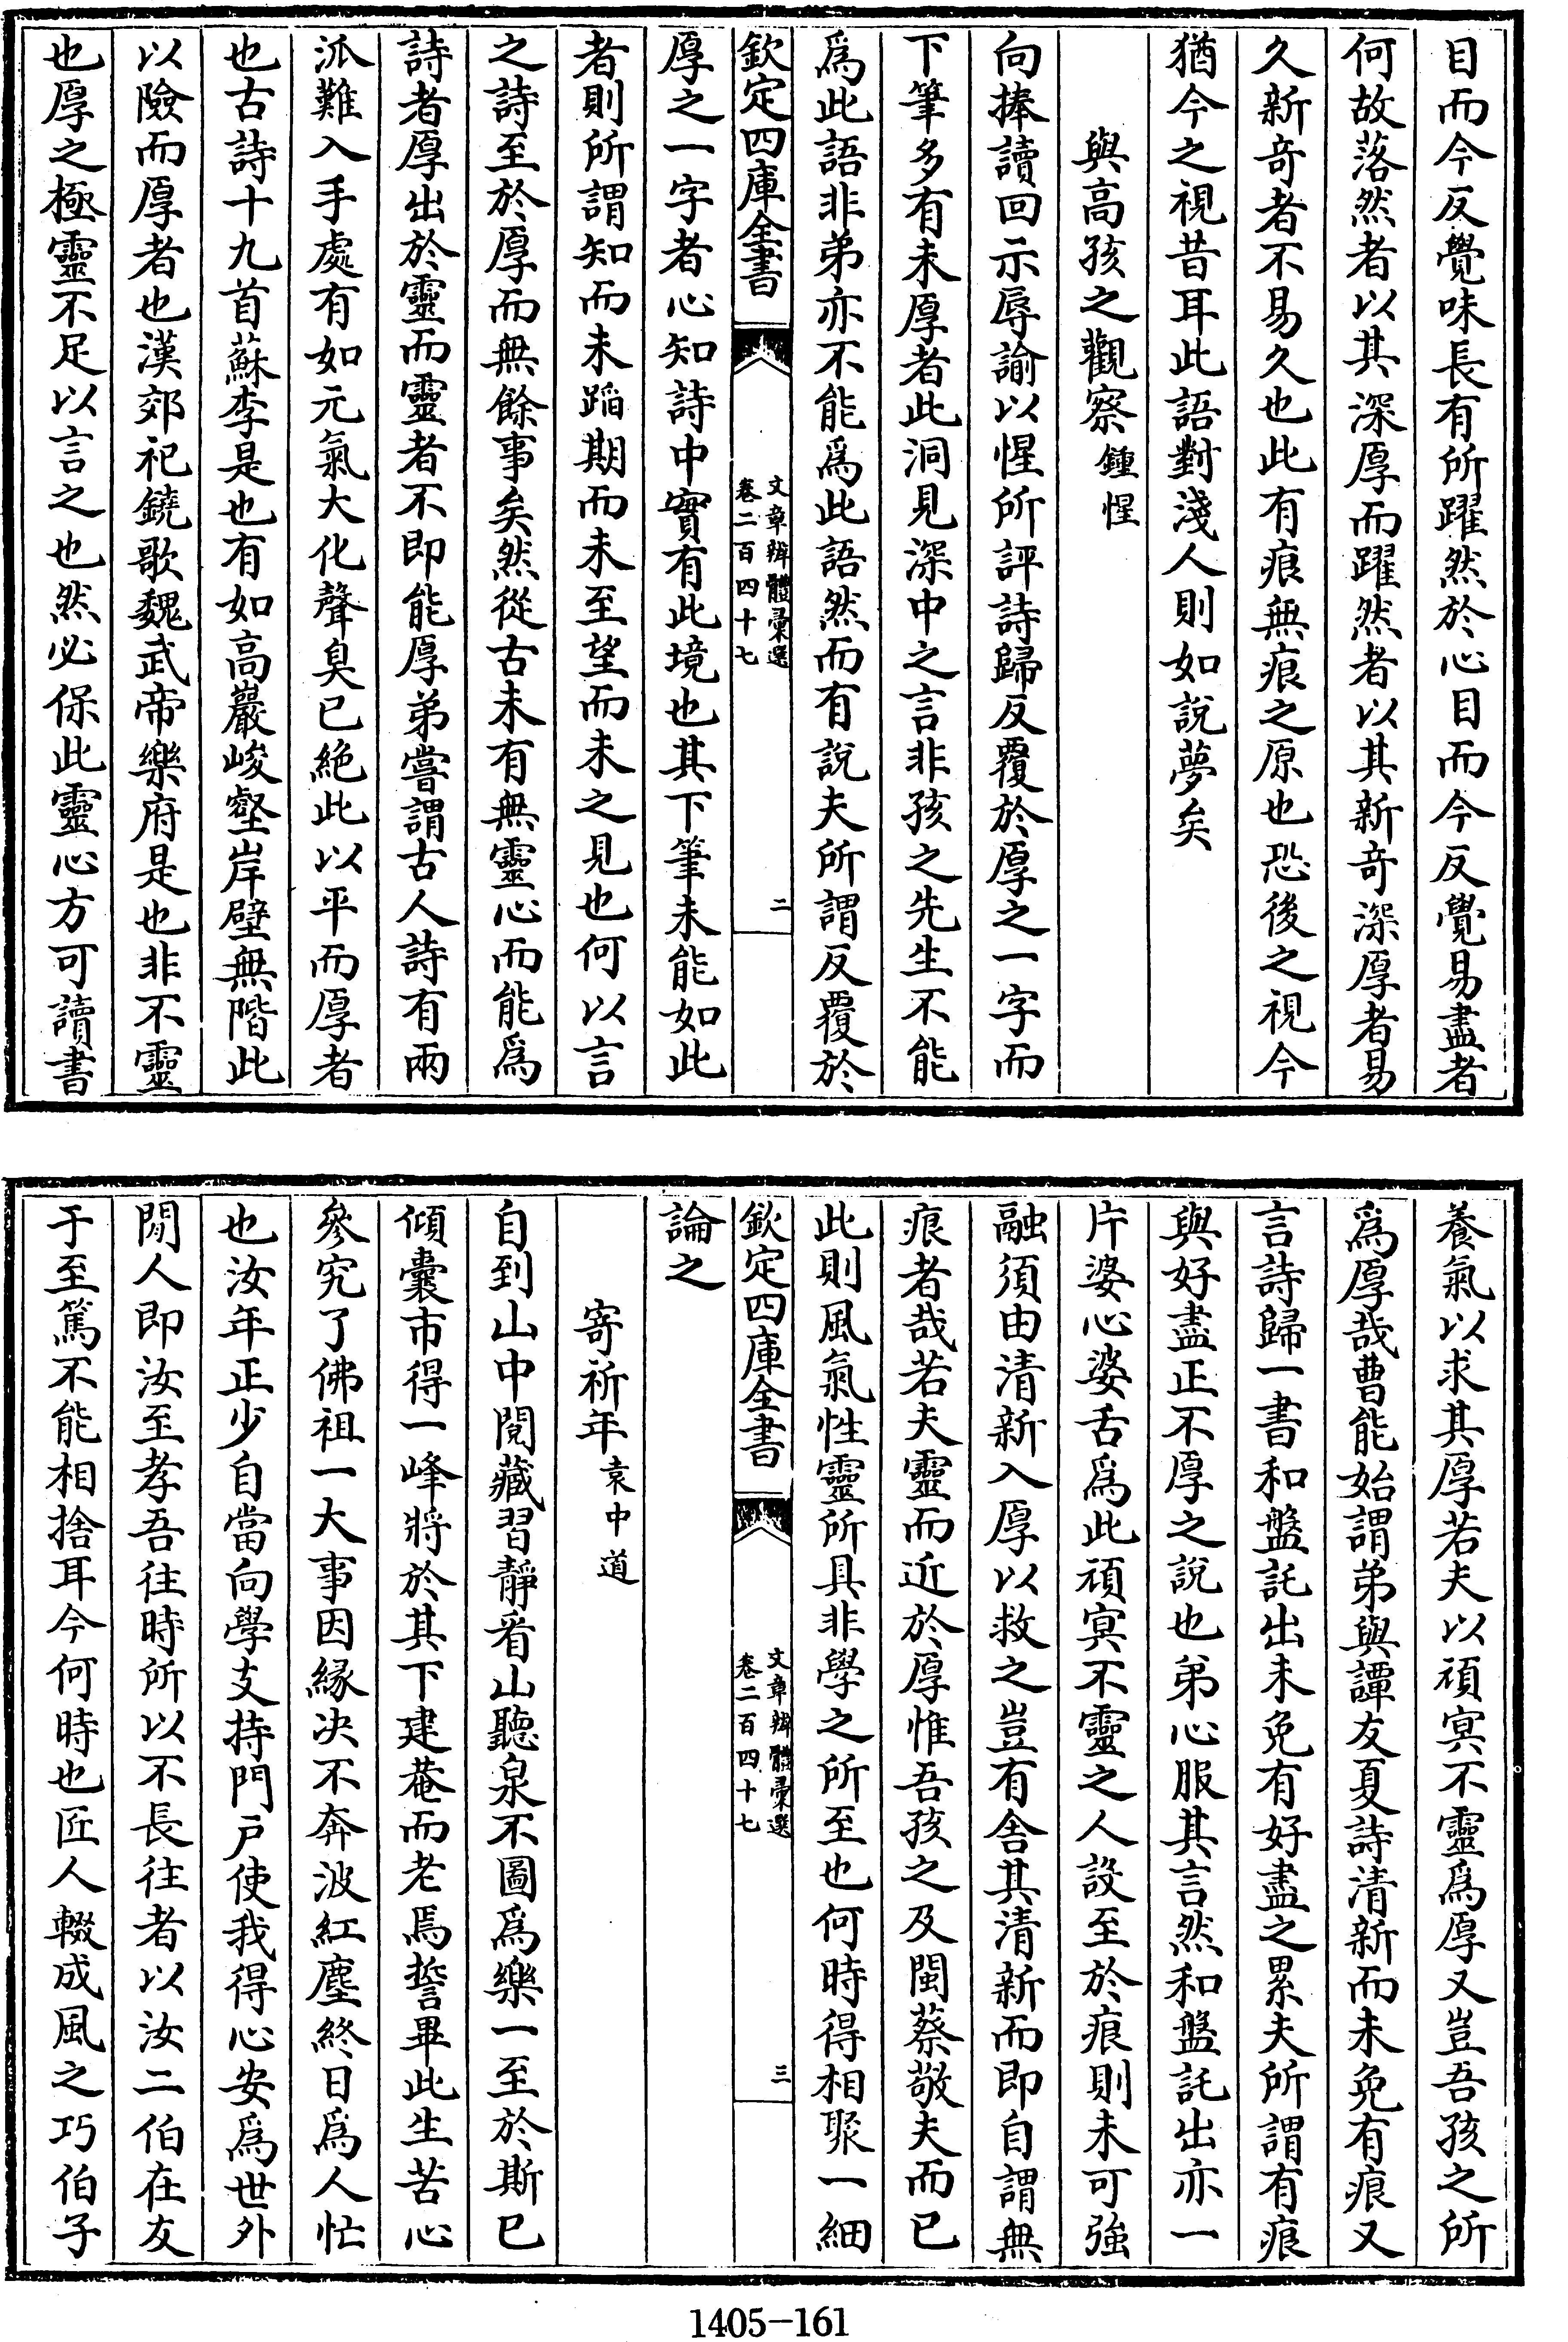 目而今反覺味長有所躍然於心目而今反覺易盡者
何故落然者以其深厚而躍然者以其新奇深厚者易
久新奇者不易久也此有痕無痕之原也恐後之視今
猶今之視昔耳此語對淺人則如說夢矣
與高孩之觀察鍾惺
向捧讀回示辱諭以惺所評詩歸反覆於厚之一字而
下筆多有未厚者此洞見深中之言非孩之先生不能
爲此語非弟亦不能爲此語然而有說夫所謂反覆於
欽定四庫全書
文章辨體彙選
卷二百四十七
二
厚之一字者心知詩中實有此境也其下筆未能如此
者則所謂知而未蹈期而未至望而未之見也何以言
之詩至於厚而無餘事矣然從古未有無靈心而能爲
詩者厚出於靈而靈者不即能厚弟嘗謂古人詩有兩
派難入手處有如元氣大化聲臭已絶此以平而厚者
也古詩十九首蘇李是也有如高巖峻壑岸壁無階此
以險而厚者也漢郊祀鐃歌魏武帝樂府是也非不靈
也厚之極靈不足以言之也然必保此靈心方可讀書
養氣以求其厚若夫以頑冥不靈爲厚又豈吾孩之所
爲厚哉曹能始謂弟與譚友夏詩清新而未免有痕又
言詩歸一書和盤託出未免有好盡之累夫所謂有痕
與好盡正不厚之說也弟心服其言然和盤託出亦一
片婆心婆舌爲此頑冥不靈之人設至於痕則未可強
融須由清新入厚以救之豈有舍其清新而即自謂無
痕者哉若夫靈而近於厚惟吾孩之及閩蔡敬夫而已
此則風氣性靈所具非學之所至也何時得相聚一細
欽定四庫全書
文章辨體彙選
卷二百四十七
三
論之
寄祈年袁中道
自到山中閱藏習靜看山聽泉不圖爲樂一至於斯已
傾囊市得一峰將於其下建菴而老焉誓畢此生苦心
參究了佛祖一大事因緣决不奔波紅塵終日爲人忙
也汝年正少自當向學支持門户使我得心安爲世外
閒人即汝至孝吾往時所以不長往者以汝二伯在友
于至篤不能相捨耳今何時也匠人輟成風之巧伯子
1405-161